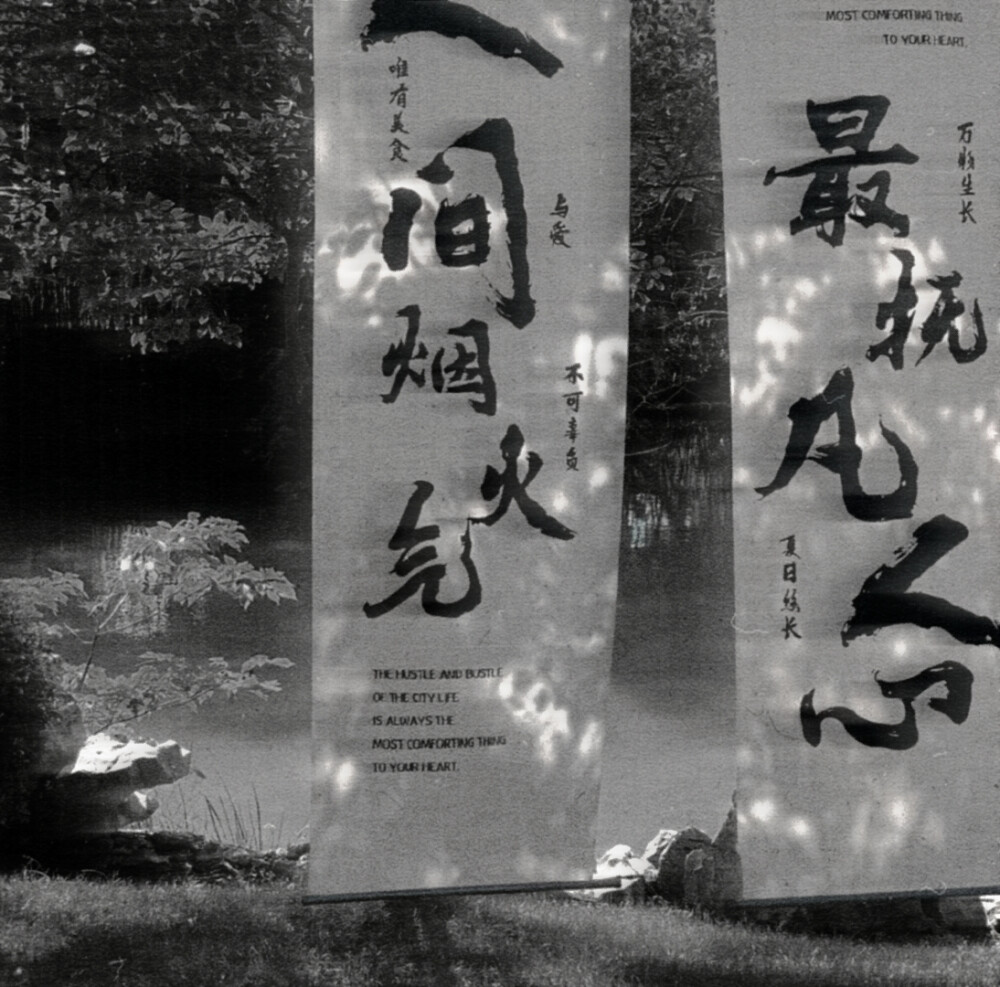 间烟火气
唯有美食
与爱
不可辜负
THE HUSTLE AND BUSTLE
OF THE CITY LIFE
IS ALWAYS THE
MOST COMFORTING THING
TO YOUR HEART.
MOST COMFORTING THING
TO YOUR HEART.
最抚凡人心
万物生长
夏日绵长